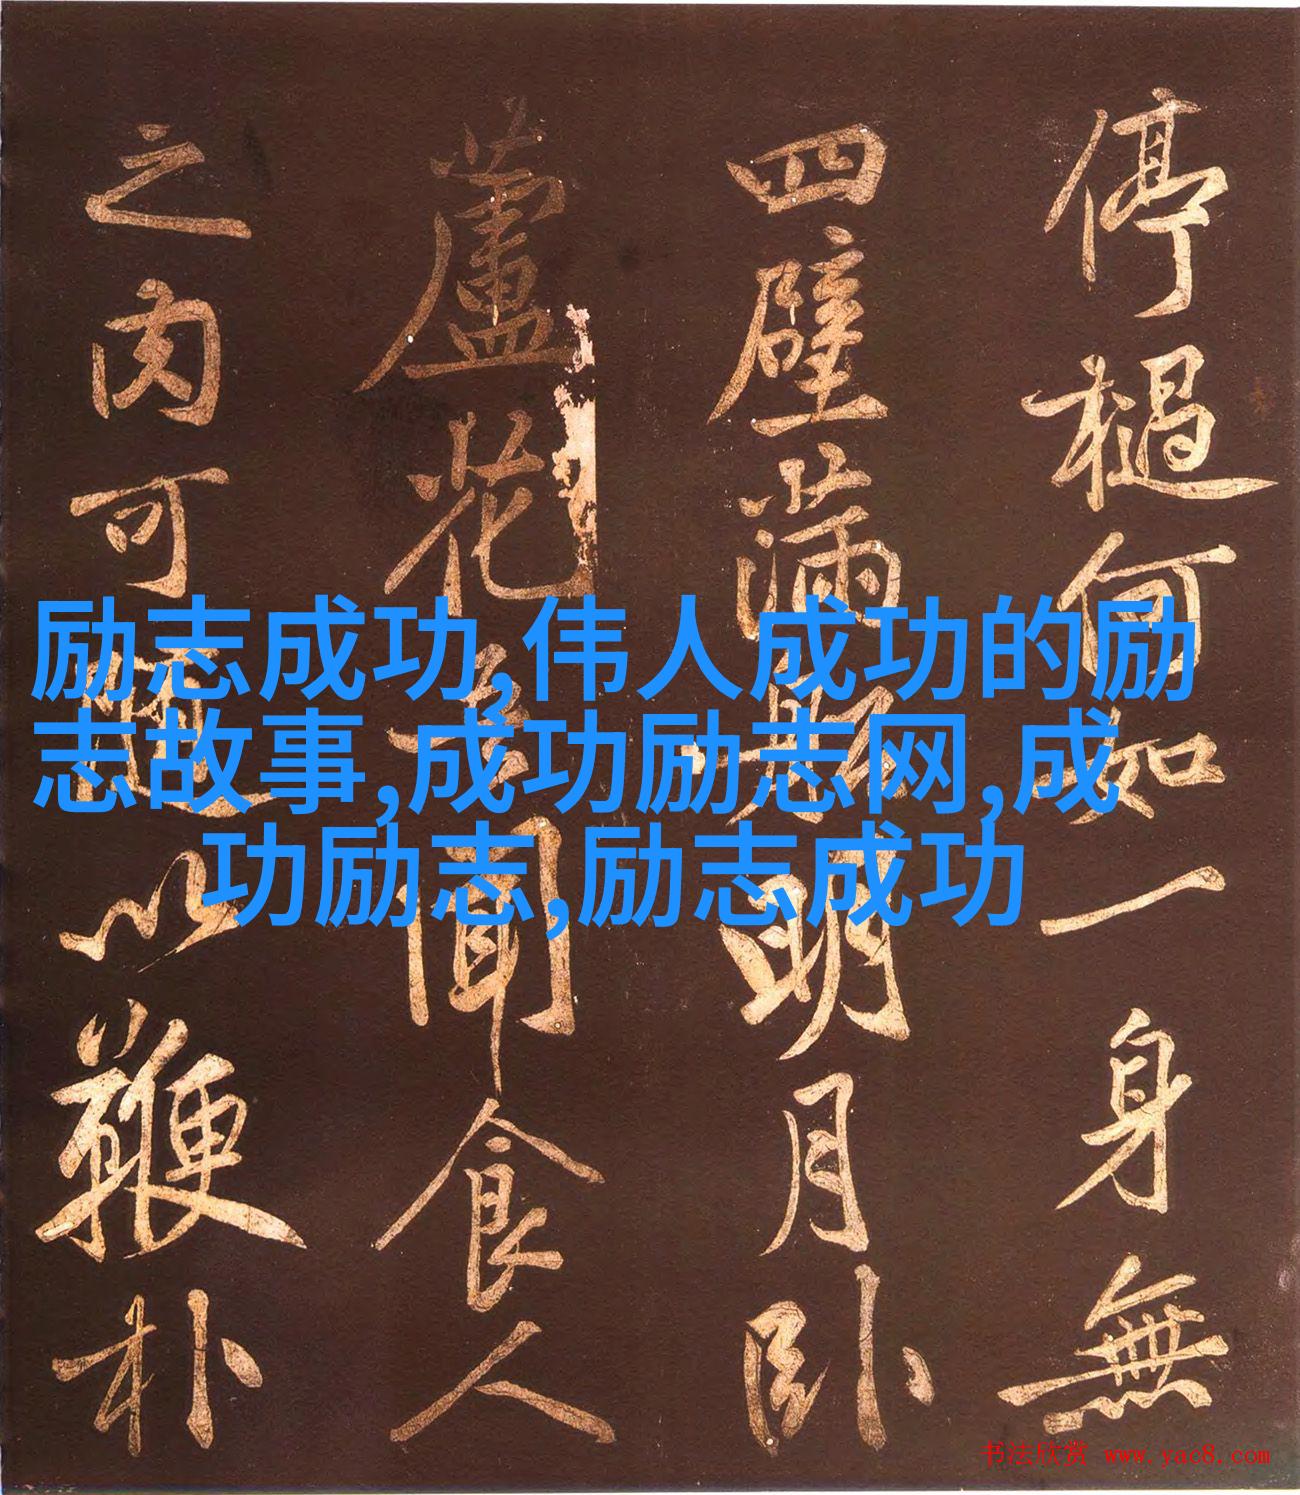 停檛何如一身無
四壁滿明月臥
蘆花聞食人
之肉可隨以鞭朴
励志成功,伟人成功的励
志故事,成功励志网,成
功励志,励志成功
书法欣赏 www.yac8.com